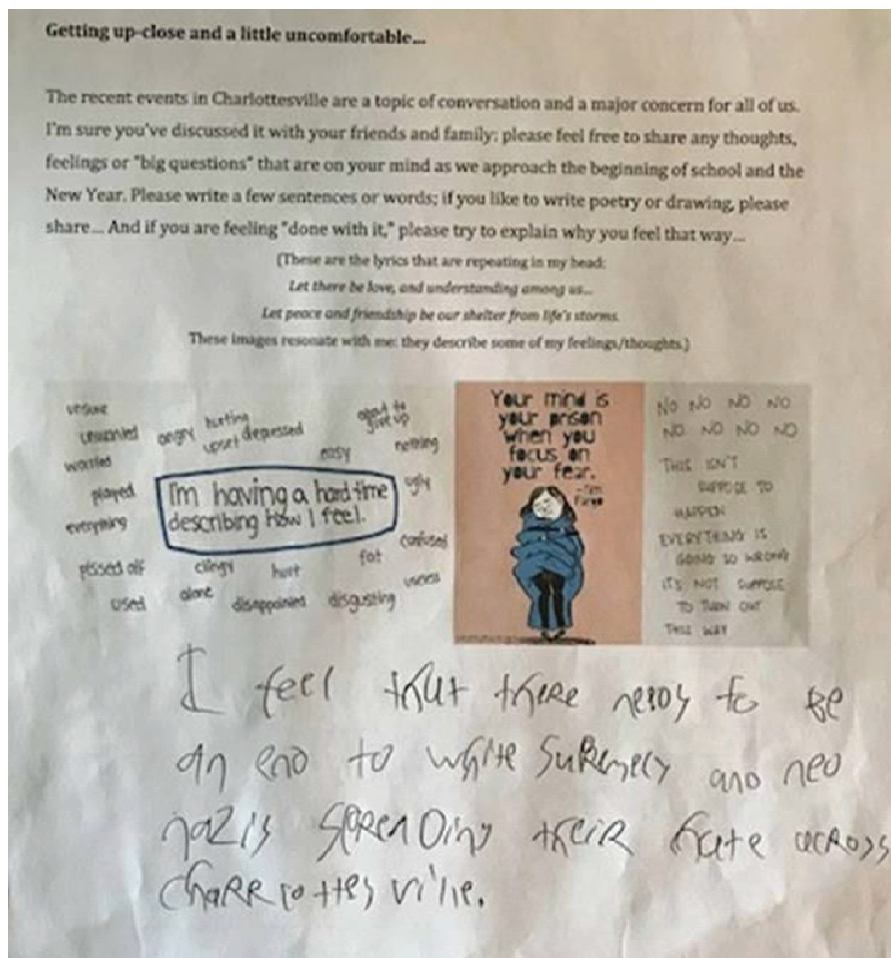 Getting up-close and a little uncomfortable...
The recent events in Charlottesville are a topic of conversation and a major concern for all of us.
I'm sure you've discussed it with your friends and family; please feel free to share any thoughts,
feelings or "big questions" that are on your mind as we approach the beginning of school and the
New Year. Please write a few sentences or words; if you like to write poetry or drawing, please
share... And if you are feeling "done with it," please try to explain why you feel that way...
(These are the lyrics that are repeating in my head:
Let there be love, and understanding among us...
Let peace and friendship be our shelter from life's storms.
These images resonate with me: they describe some of my feelings/thoughts.)
unsure
unwanted
worried
played
everything
pissed off
used
angry
hurting
upset
depressed
easy
about to
give up
nothing
ugly
I'm having a hard time
describing how I feel.
confused
fat
useless
clingy
hurt
alone
disappointed
disgusting
Your mind is
your prison
when you
focus on
your fear.
NO NO NO NO
NO NO NO NO
THIS ISN'T
SUPPOSE TO
HAPPEN
EVERYTHING IS
GOING SO WRONG
IT'S NOT SUPPOSE
TO TURN OUT
THIS WAY
I feel that there needs to be
an end to white supremecy and neo
nazis spreading their hate across
charrlottesville.